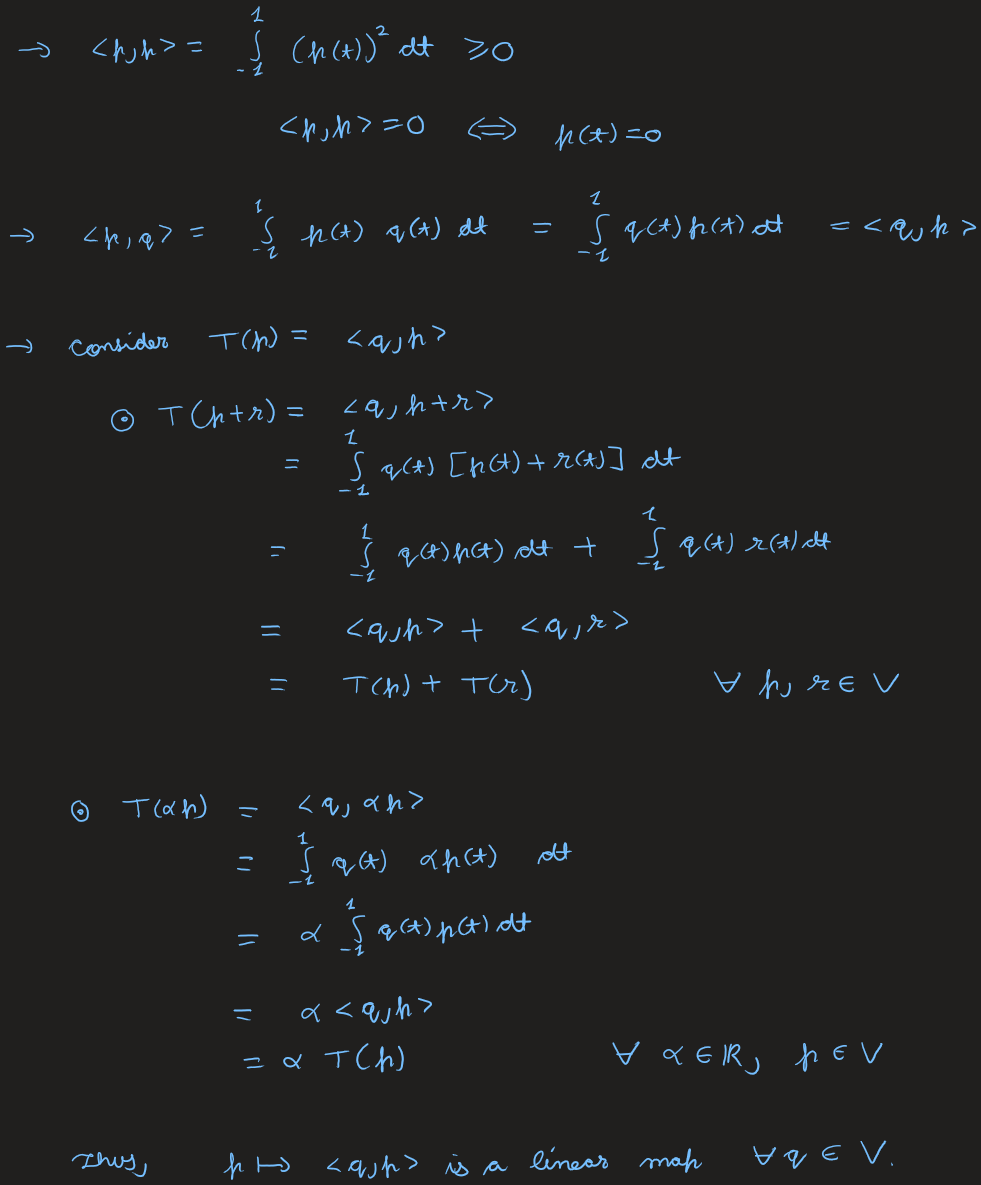 → <p,p> = ∫₋₁¹ (p(t))² dt ≥ 0
<p,p> = 0 ⇔ p(t) = 0
→ <p,q> = ∫₋₁¹ p(t) q(t) dt = ∫₋₁¹ q(t) p(t) dt = <q,p>
→ Consider T(p) = <q,p>
⊙ T(p+r) = <q, p+r>
= ∫₋₁¹ q(t) [p(t) + r(t)] dt
= ∫₋₁¹ q(t) p(t) dt + ∫₋₁¹ q(t) r(t) dt
= <q,p> + <q,r>
= T(p) + T(r) ∀ p, r ∈ V
⊙ T(αp) = <q, αp>
= ∫₋₁¹ q(t) αp(t) dt
= α ∫₋₁¹ q(t) p(t) dt
= α <q,p>
= α T(p) ∀ α ∈ ℝ, p ∈ V
Thus, p ↦ <q,p> is a linear map ∀ q ∈ V.